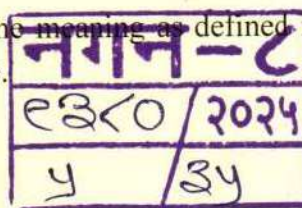 meaning as defined
नगन - ८
९३८०/२०२५
५/३५